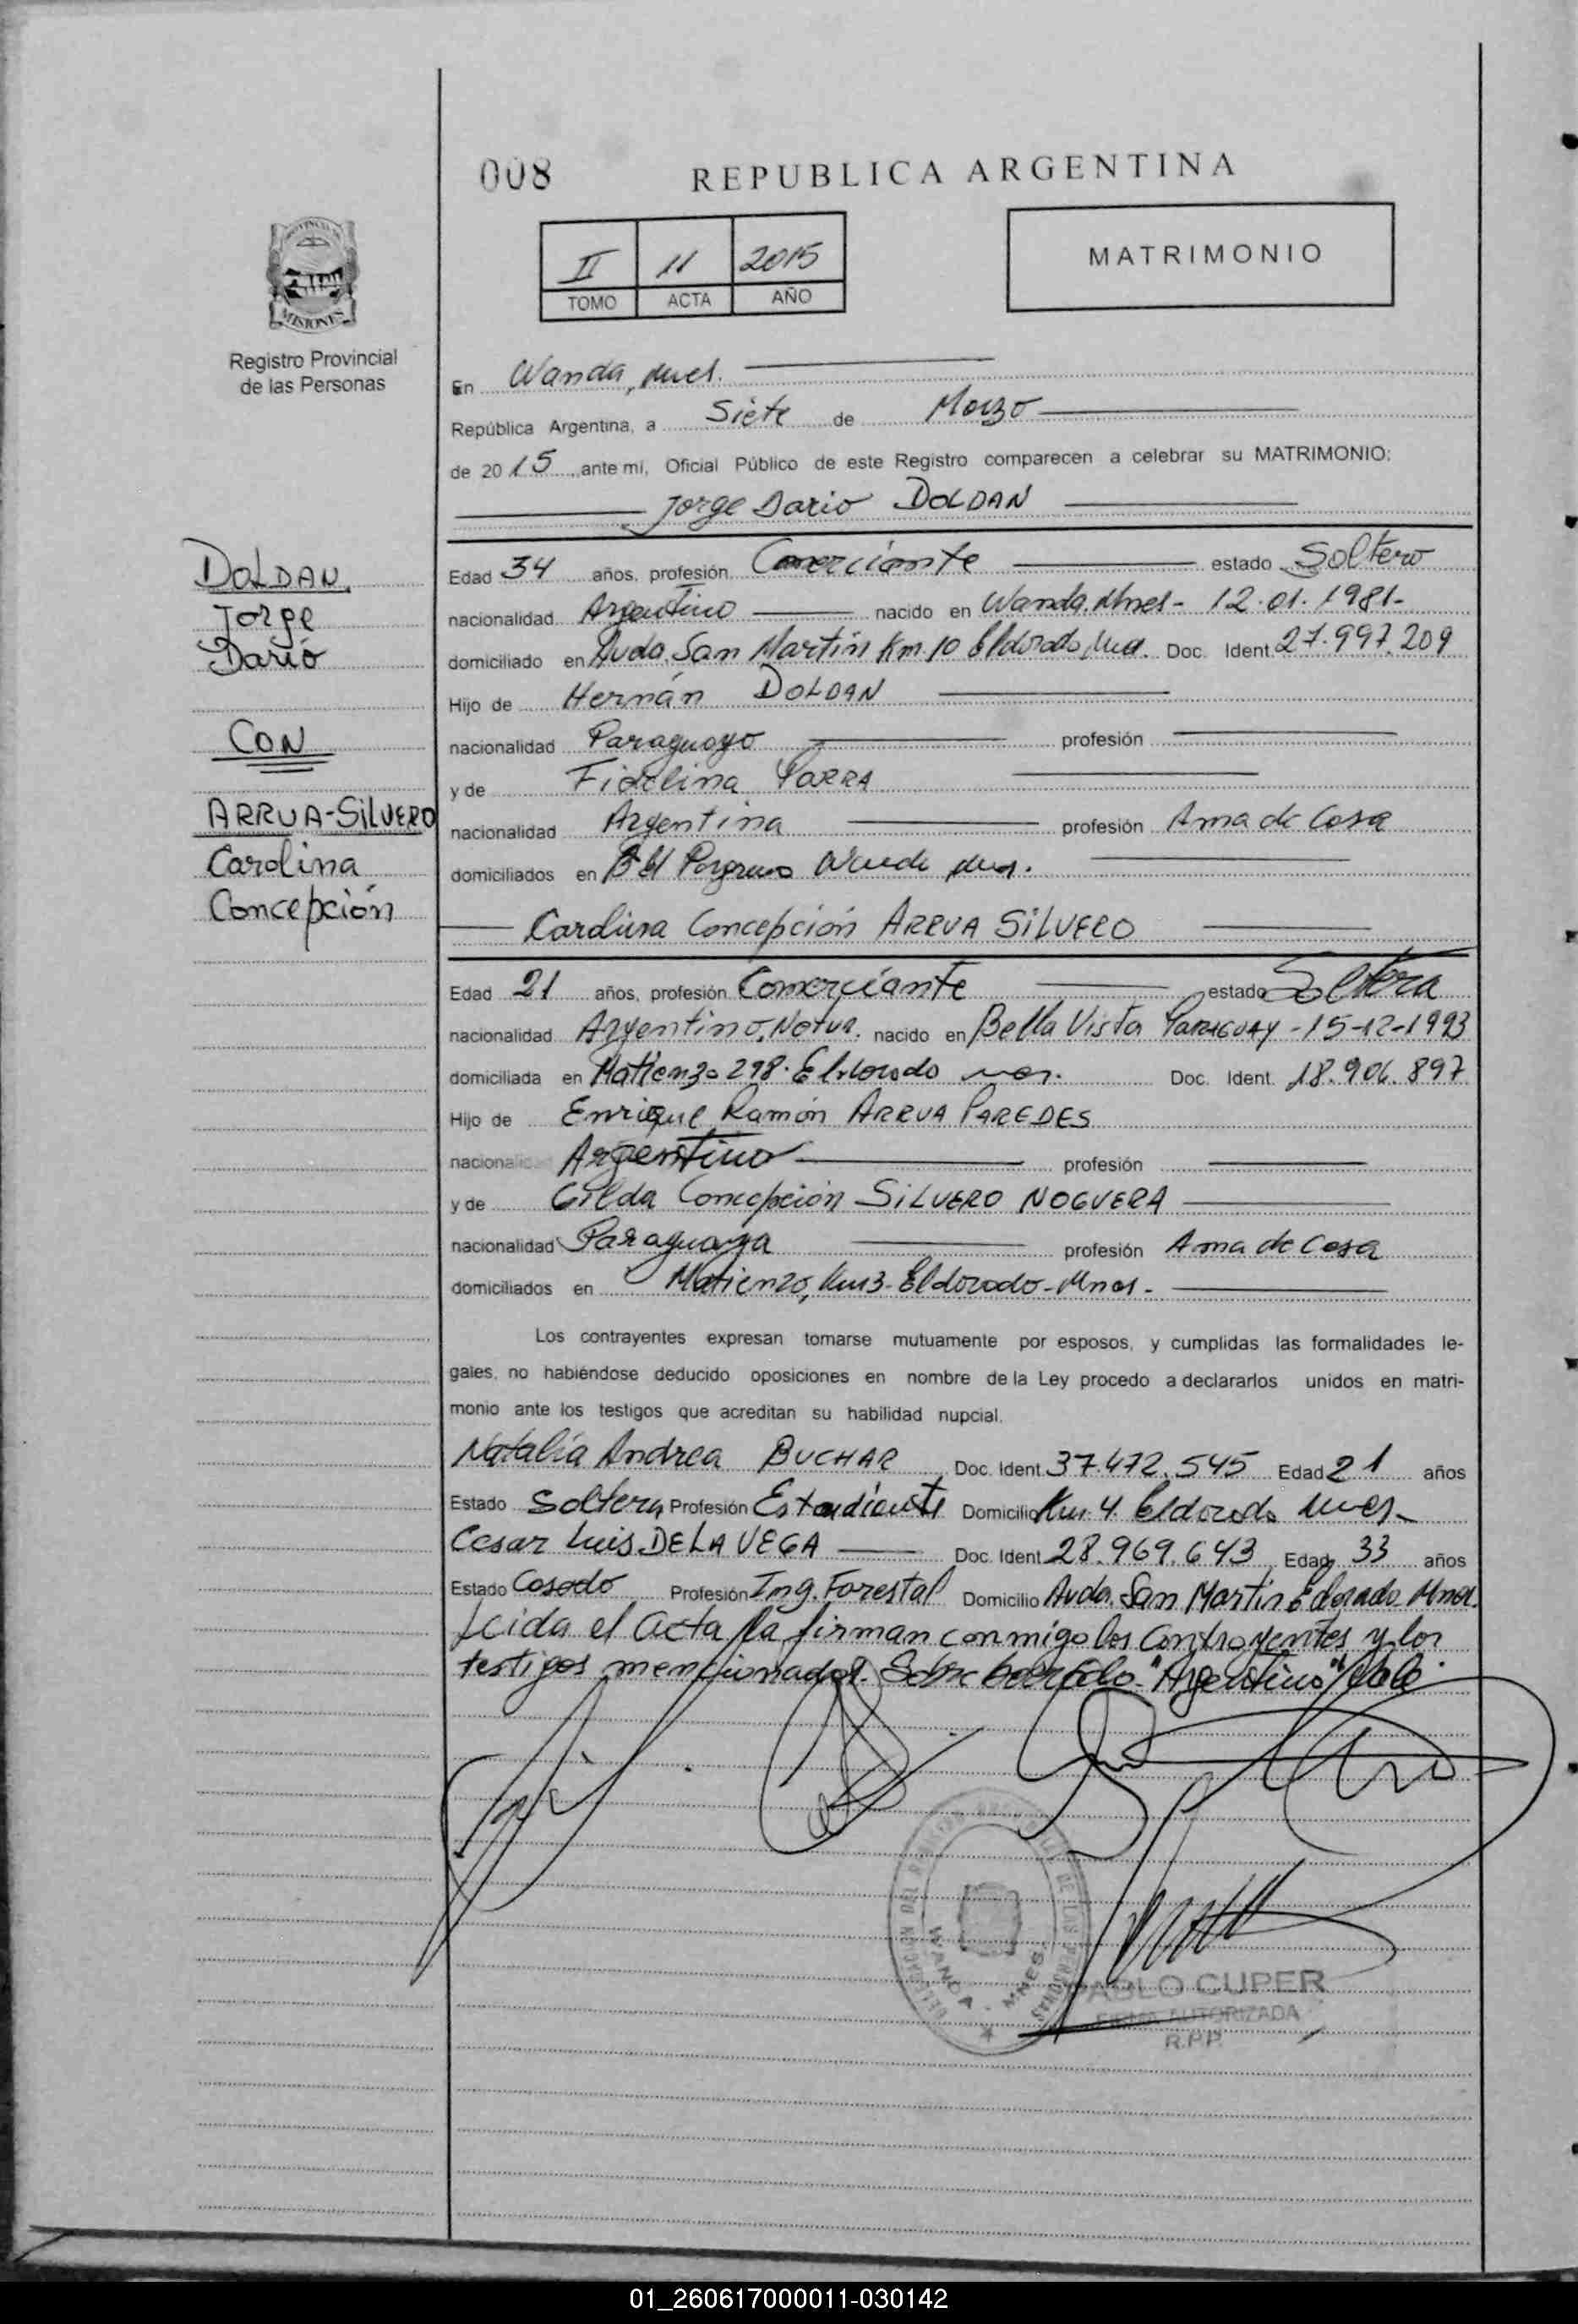 008
REPUBLICA ARGENTINA
II 11 2015
TOMO ACTA AÑO
MATRIMONIO
MISIONES
Registro Provincial
de las Personas
En Wanda, Mnes.
República Argentina, a Siete de Marzo
de 2015, ante mí, Oficial Público de este Registro comparecen a celebrar su MATRIMONIO:
Jorge Dario DOLDAN
DOLDAN,
Jorge
Darío
CON
ARRUA-SILVERO
Carolina
Concepción
Edad 34 años, profesión Comerciante estado Soltero
nacionalidad Argentino nacido en Wanda, Mnes- 12.01.1981-
domiciliado en Avda. San Martín Km. 10 Eldorado Doc. Ident. 27.997.209
Hijo de Hernán DOLDAN
nacionalidad Paraguayo profesión
y de Fidelina PARRA
nacionalidad Argentina profesión Ama de Casa
domiciliados en Wanda
Carolina Concepción ARRUA SILVERO
Edad 21 años, profesión Comerciante estado Soltera
nacionalidad Argentino, Natur. nacido en Bella Vista PARAGUAY - 15-12-1993
domiciliada en Matienzo 298. Eldorado Doc. Ident. 18.906.897
Hijo de Enrique Ramón ARRUA PAREDES
nacionalid Argentino profesión
y de Gilda Concepción SILVERO NOGUERA
nacionalidad Paraguaya profesión Ama de Casa
domiciliados en Matienzo, Km3-Eldorado-Mnes-
Los contrayentes expresan tomarse mutuamente por esposos, y cumplidas las formalidades le-
gales, no habiéndose deducido oposiciones en nombre de la Ley procedo a declararlos unidos en matri-
monio ante los testigos que acreditan su habilidad nupcial.
Natalia Andrea BUCHAR Doc. Ident. 37.472.545 Edad 21 años
Estado Soltera Profesión Estudiante Domicilio Km. 4. Eldorado Mnes-
Cesar Luis DE LA VEGA Doc. Ident. 28.969.643 Edad 33 años
Estado Casado Profesión Ing. Forestal Domicilio Avda. San Martin Eldorado Mnes.
Leida el Acta la firman conmigo los Contrayentes y los
testigos mencionados. Sobre borrado "Argentino" Vale.
WANDA - MNES.
PABLO CUPER
FIRMA AUTORIZADA
R.P.P.
01_260617000011-030142